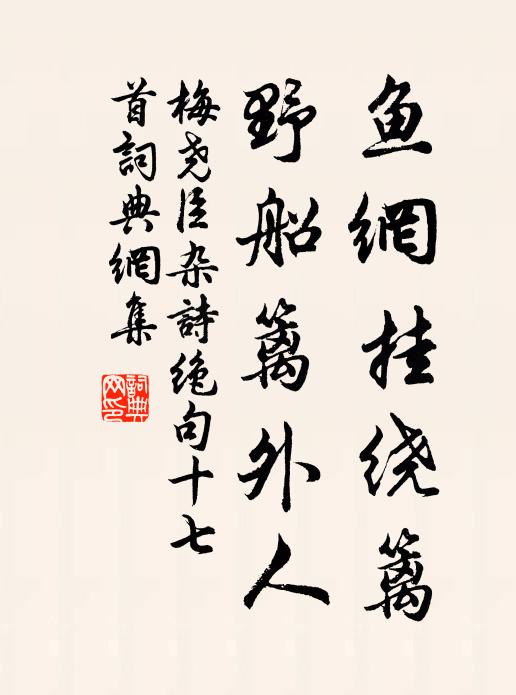 鱼網挂绕篱
野船篱外人
梅尧臣杂詩绝句十七
首詞典網集
詞典
网印